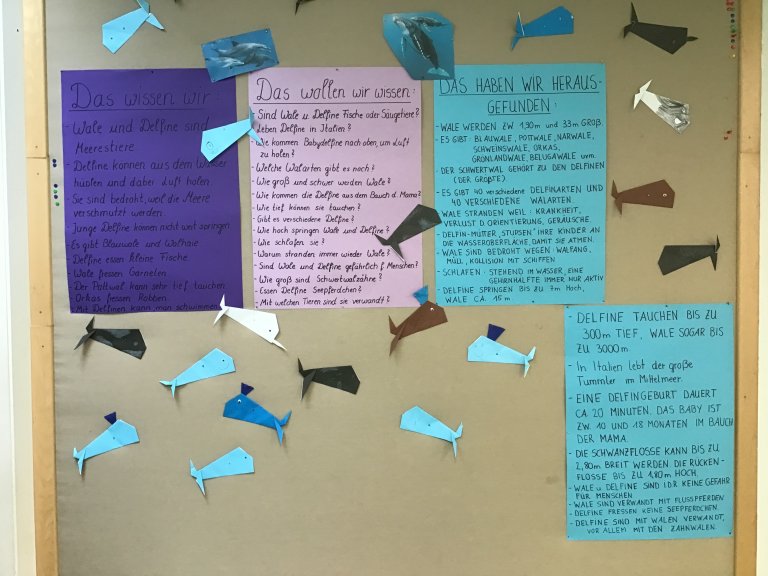 Das wissen wir:
- Wale und Delfine sind
Meerestiere
- Delfine können aus dem Wasser
hüpfen und dabei Luft holen
- Sie sind bedroht, weil die Meere
verschmutzt werden.
- Junge Delfine können nicht weit springen
- Es gibt Blauwale und Walhaie
- Delfine essen kleine Fische
- Wale fressen Garnelen.
- Der Pottwal kann sehr tief tauchen.
- Orkas fressen Robben.
- Mit Delfinen kann man schwimmen
Das wollen wir wissen:
- Sind Wale u. Delfine Fische oder Säugetiere?
- Leben Delfine in Italien?
- Wie kommen Babydelfine nach oben, um Luft
zu holen?
- Welche Walarten gibt es noch?
- Wie groß und schwer werden Wale?
- Wie kommen die Delfine aus dem Bauch d. Mama?
- Wie tief können sie tauchen?
- Gibt es verschiedene Delfine?
- Wie hoch springen Wale und Delfine?
- Wie schlafen sie?
- Warum stranden immer wieder Wale?
- Sind Wale und Delfine gefährlich f. Menschen?
- Wie groß sind Schwertwalzähne?
- Essen Delfine Seepferdchen?
- Mit welchen Tieren sind sie verwandt?
DAS HABEN WIR HERAUS-
GEFUNDEN:
- WALE WERDEN ZW 1,90m und 33m GROß
- ES GIBT: BLAUWALE, POTTWALE, NARWALE,
SCHWEINSWALE, ORKAS,
GRÖNLANDWALE, BELUGAWALE uvm.
- DER SCHWERTWAL GEHÖRT ZU DEN DELFINEN
(DER GRÖßTE)
- ES GIBT 40 verschiedene DELFINARTEN UND
40 VERSCHIEDENE WALARTEN
- WALE STRANDEN WEIL: KRANKHEIT,
VERLUST D. ORIENTIERUNG, GERÄUSCHE.
- DELFIN-MÜTTER „STUPSEN" IHRE KINDER AN
DIE WASSEROBERFLÄCHE, DAMIT SIE ATMEN.
- WALE SIND BEDROHT WEGEN: WALFANG,
MÜLL, KOLLISION MIT SCHIFFEN
- SCHLAFEN: STEHEND IM WASSER, EINE
GEHIRNHÄLFTE IMMER NUR AKTIV
- DELFINE SPRINGEN BIS ZU 7m HOCH,
WALE CA. 15 m.
- DELFINE TAUCHEN BIS ZU
300m TIEF, WALE SOGAR BIS
ZU 3000m
- In Italien lebt der große
Tümmler im Mittelmeer.
- EINE DELFINGEBURT DAUERT
CA. 20 MINUTEN. DAS BABY IST
ZW. 10 UND 18 MONATEN IM BAUCH
DER MAMA.
- DIE SCHWANZFLOSSE KANN BIS ZU
2,80m BREIT WERDEN DIE RÜCKEN-
FLOSSE BIS ZU 1,80m HOCH.
- WALE u. DELFINE SIND I.D.R KEINE GEFAHR
FÜR MENSCHEN
- WALE SIND VERWANDT MIT FLUSSPFERDEN
- DELFINE FRESSEN KEINE SEEPFERDCHEN.
- DELFINE SIND MIT WALEN VERWANDT,
VOR ALLEM MIT DEN ZAHNWALEN.